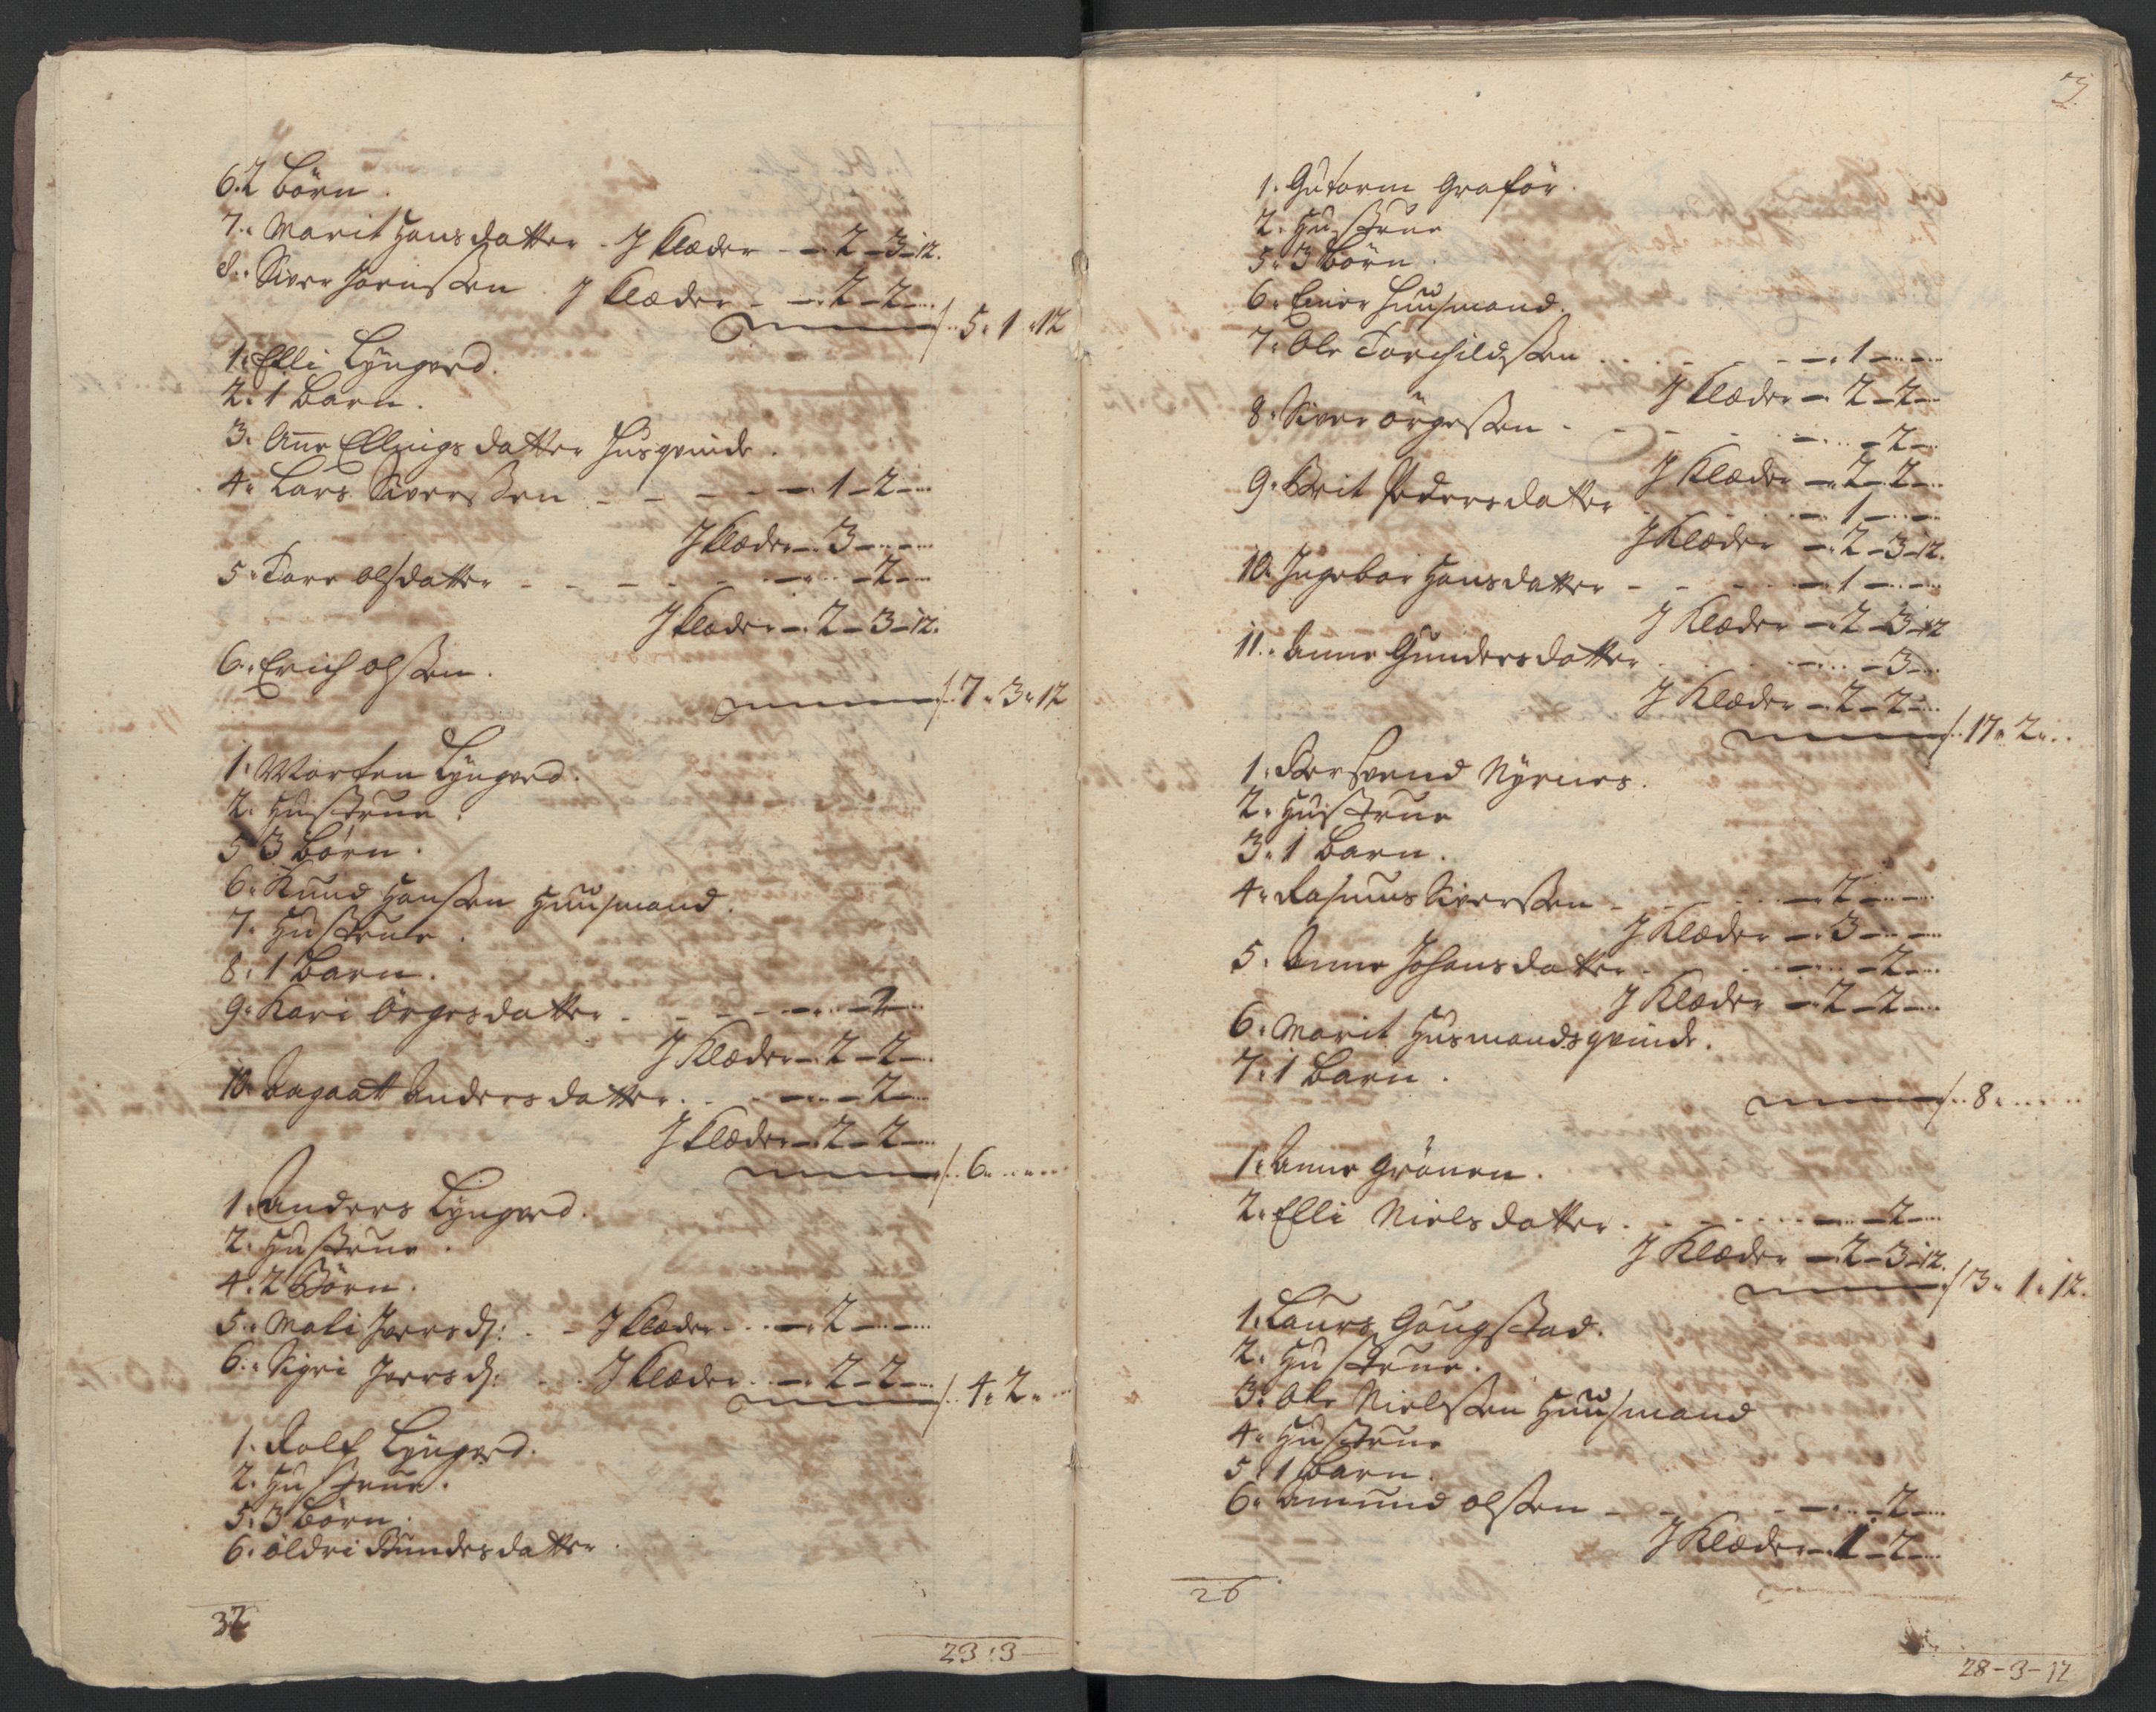 6. 2 börn.
7. Marit Hansdatter - J Klæder - 2 - 3 - 12.
8. Siver Jonssen. J Klæder - - 2 - 2 - ...
5 " 1 " 12
1. Elli Lÿngved.
2. 1 Barn.
3. Ane Ellingsdatter Husqvinde.
4. Lars Siverssen - - - - 1 - 2 - ...
J Klæder - 3 - ...
5. Tore olsdatter - - - - 2 - ...
J Klæder - 2 - 3 - 12.
6. Erich olssen.
7 " 3 " 12
1. Morten Lÿngved.
2. Hustrue.
5 3 börn.
6. Knud Hanssen Huusmand.
7. Hustrue.
8. 1 Barn.
9. Kari Örgesdatter - - - - 2 - ...
J Klæder - 2 - 2 - ...
10. Andersdatter - - - 2 - ...
J Klæder - 2 - 2 - ...
6 " ...
1. Anders Lÿngved.
2. Hustrue.
4. 2 Börn.
5. Mali Joersd: - - J Klæder - - 2 - ...
6. Sigri Joersd: - - J Klæder - - 2 - 2 - ...
4 " 2 " ...
1. Rolf Lÿngved.
2. Hustrue.
5. 3 börn.
6. öldri datter.
32
23 : 3 -
3
1. Gutorm Graför.
2. Hustrue
5. 3 börn.
6. Einer Huusmand.
7. Ole Torchildssen - - - 1 - ...
J Klæder - 2 - 2 - ...
8. Siver örgessen - - - - 2 - ...
J Klæder - 2 - 2 - ...
9. Berit Pedersdatter - - - 1 - ...
J Klæder - 2 - 3 - 12.
10. Ingebor Hansdatter - - - 1 - ...
J Klæder - 2 - 3 - 12
11. Anne Gundersdatter - - - 3 - ...
J Klæder - 2 - 2 - ...
17 " 2 " ..
1. Bersvend Nÿrnes.
2. Hustrue
3. 1 Barn.
4. Rasmus Siverssen - - - 2 - ...
J Klæder - 3 - ...
5. Anne Johansdatter - - - 2 - ...
J Klæder - 2 - 2 - ...
6. Marit Husmandsqvinde.
7. 1 Barn.
8 " ...
1. Anne Grönen.
2. Elli Nielsdatter - - - 2 - ...
J Klæder - 2 - 3 - 12.
3 " 1 " 12.
1. Laurs Gaugstad.
2. Hustrue.
3. Ole Nielssen Huusmand
4. Hustrue
5 1 Barn.
6. Amund olssen - - - - 2 - ...
J Klæder - 1 - 2 - ...
26
28 - 3 - 12